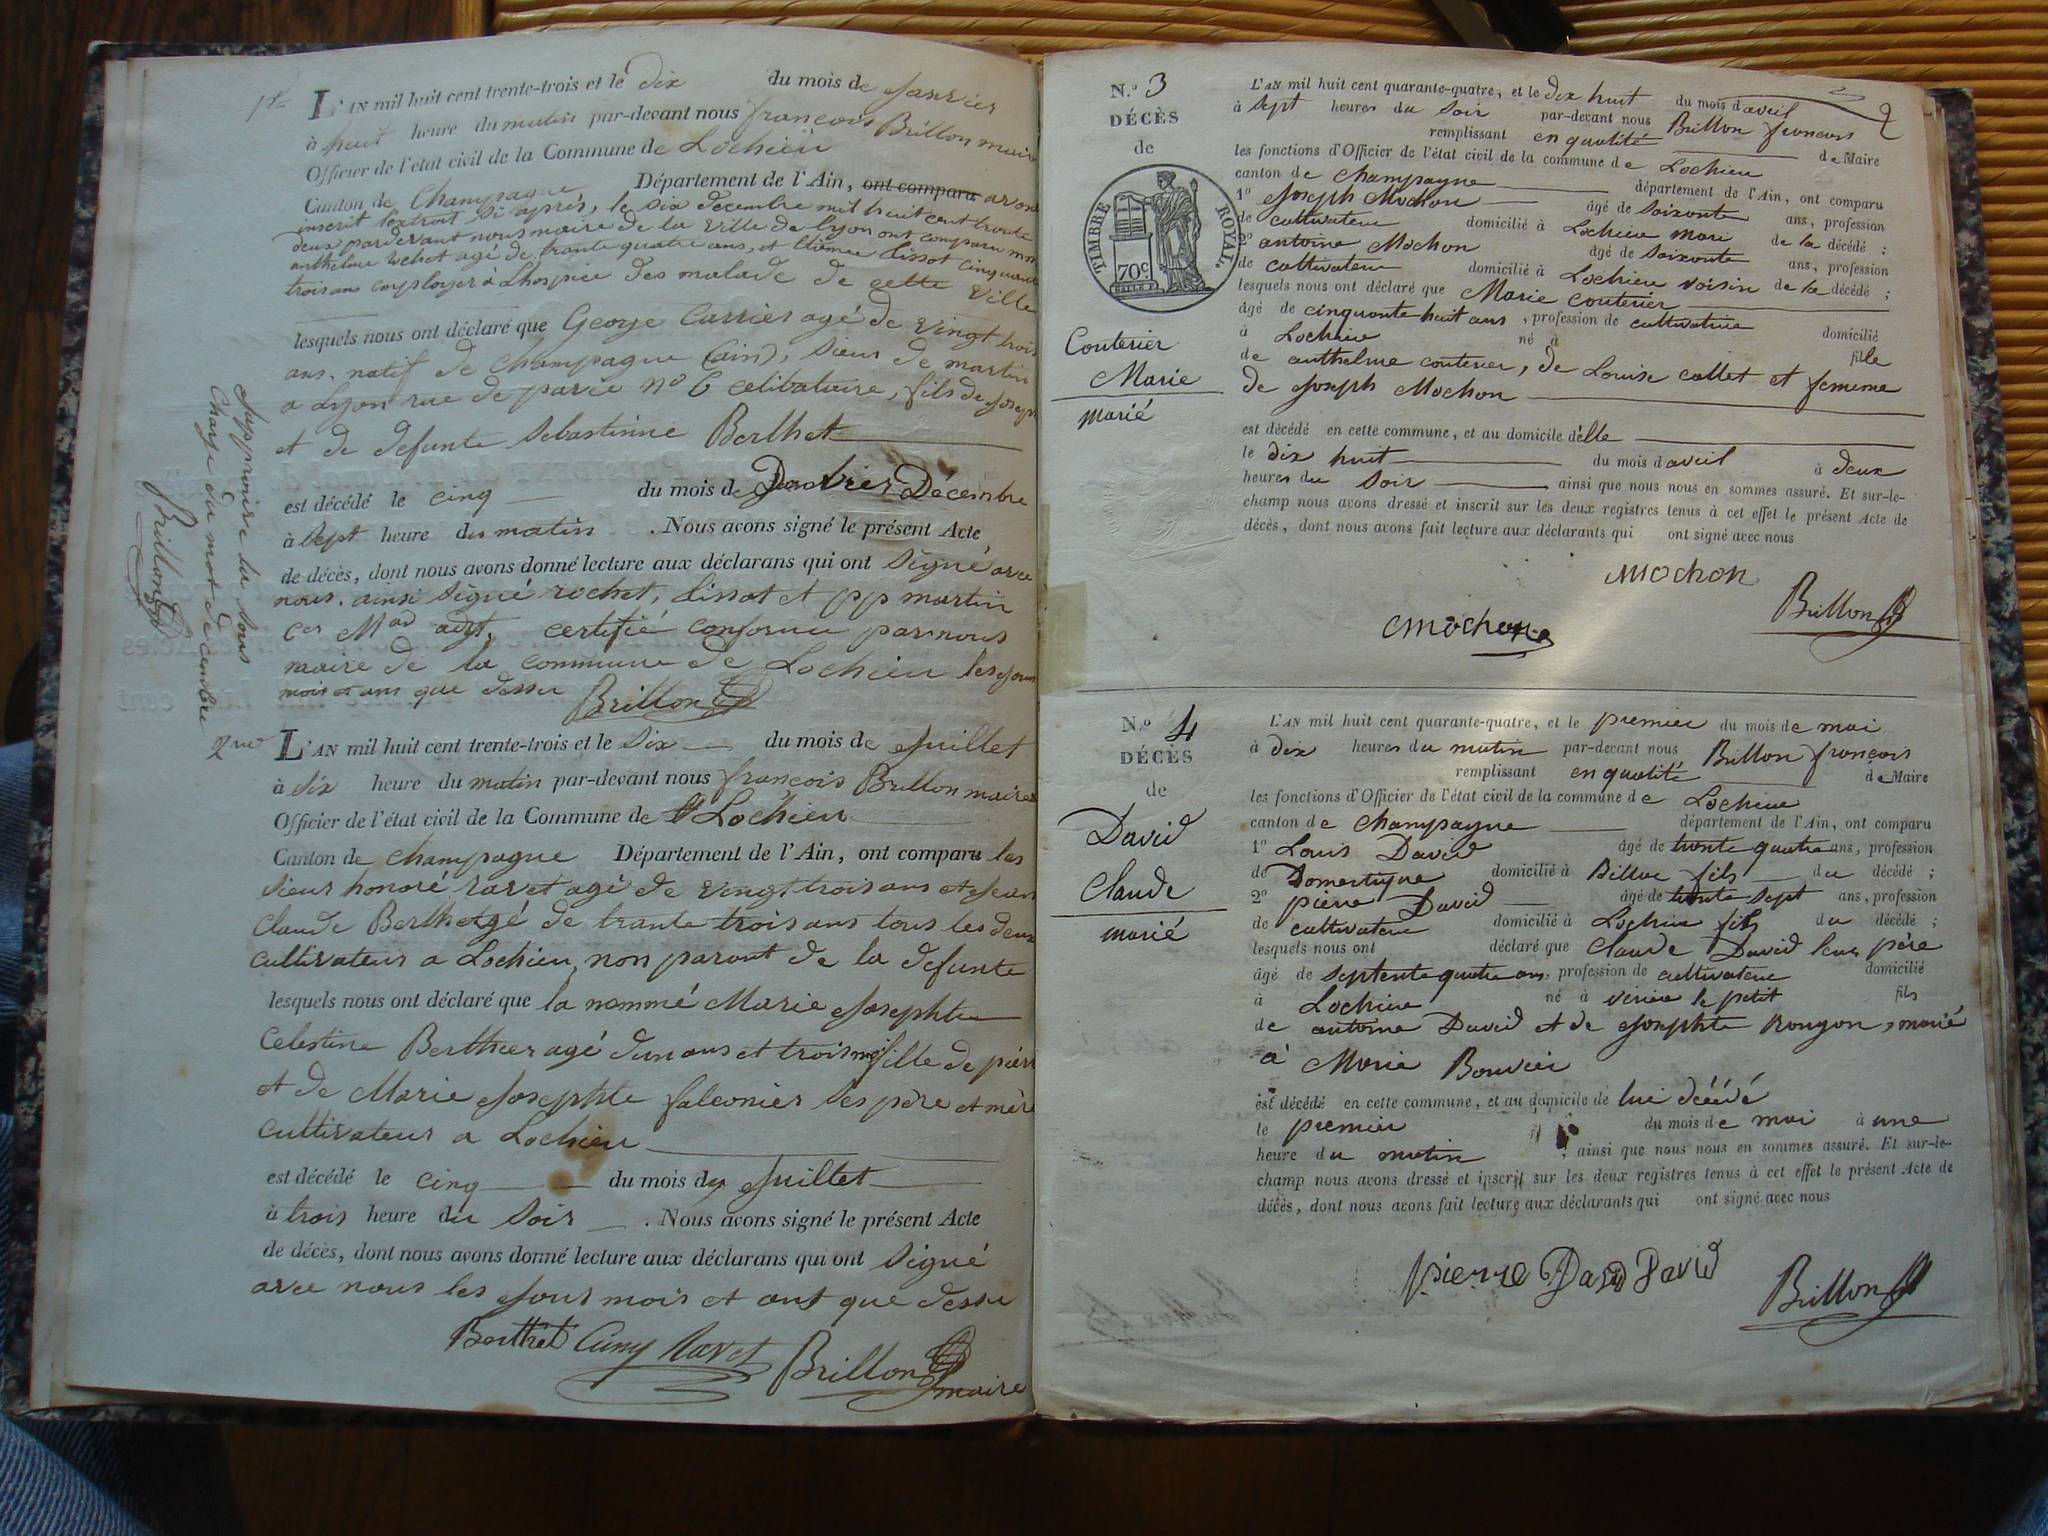 1er
L'AN mil huit cent trente-trois et le dix du mois de Janvier
à huit heure du matin par-devant nous françois Brillon maire
Officier de l'état civil de la Commune de Lochieu
Canton de Champagne Département de l'Ain, ont comparu avons
inscrit lextroit si après, le six decembre mil huit cent trente
deux pardevant nous maire de la ville de lyon ont comparu mm
anthelme rochet agé de trante quatre ans, et Etienne lissot cinquante
trois ans employer à Lhospice des malade de cette ville
lesquels nous ont déclaré que George Carrier agé de vingt trois
ans, natif de Champagne (ain), sieur de martin
a Lyon rue de parcie no 6 celibataire, fils de Joseph
et de defunte Sebastinne Berthet
est décédé le cinq du mois de Janvier Décembre
à Sept heure du matin . Nous avons signé le présent Acte
de décès, dont nous avons donné lecture aux déclarans qui ont Signé avec
nous. ainsi signé rochet, lissot et pp martin
certifié conforme par nous
maire de la commune de Lochieu les jours
mois et ans que dessu Brillon
Supprimée la sous
Charge du mot decembre
Brillon
2me
L'AN mil huit cent trente-trois et le Six du mois de Juillet
à dix heure du matin par-devant nous françois Brillon maire
Officier de l'état civil de la Commune de Lochieu
Canton de Champagne Département de l'Ain, ont comparu les
sieur honoré ravet agé de vingt trois ans et Jean
Claude Berthet agé de trante trois ans tous les deux
cultivateur a Lochieu, non parant de la defunte
lesquels nous ont déclaré que la nommé Marie Josephte
Celestine Berthier agé dun ans et trois moi fille de pierre
et de Marie Josephte falconier ses père et mère
cultivateur a Lochieu
est décédé le cinq du mois du Juillet
à trois heure du Soir . Nous avons signé le présent Acte
de décès, dont nous avons donné lecture aux déclarans qui ont Signé
avec nous les Jour mois et ant que dessu
Berthet Cuny Ravet Brillon
maire
N.º 3
DÉCÈS
de
TIMBRE ROYAL.
70 c
Couterier
Marie
marié
L'AN mil huit cent quarante-quatre, et le dix huit du mois d avril 2
à Sept heures du Soir par-devant nous Brillon francois
remplissant en qualité de Maire
les fonctions d'Officier de l'état civil de la commune de Lochieu
canton de Champagne département de l'Ain, ont comparu
1º Joseph Mochon âgé de Soixonte ans, profession
de cultivateur domicilié à Lochieu mari de la décédé ;
2º antoine Mochon âgé de Soixonte ans, profession
de cultivateur domicilié à Lochieu voisin de la décédé ;
lesquels nous ont déclaré que Marie couterier
âgé de cinquonte huit ans , profession de cultivatrice domicilié
à Lochieu né à fille
de anthelme couterier, de Louise collet et femme
de Joseph Mochon
est décédé en cette commune, et au domicile d'elle
le dix huit du mois d avril à deux
heures du Soir ainsi que nous nous en sommes assuré. Et sur-le-
champ nous avons dressé et inscrit sur les deux registres tenus à cet effet le présent Acte de
décès, dont nous avons fait lecture aux déclarants qui ont signé avec nous
Mochon
Brillon
N.º 4
DÉCÈS
de
David
Claude
marié
L'AN mil huit cent quarante-quatre, et le premier du mois de mai
à dix heures du matin par-devant nous Brillon françois
remplissant en qualité de Maire
les fonctions d'Officier de l'état civil de la commune de Lochieu
canton de Champagne département de l'Ain, ont comparu
1º Louis David âgé de trente quatre ans, profession
de Domestique domicilié à fils du décédé ;
2º pierre David âgé de trente sept ans, profession
de cultivateur domicilié à Lochieu fils du décédé ;
lesquels nous ont déclaré que Claude David leur père
âgé de septente quatre ans, profession de cultivateur domicilié
à Lochieu né à virieu le petit fils
de antoine David et de Josephte Rongon, marié
à Marie Bouvier
est décédé en cette commune, et au domicile de lui décédé
le premier du mois de mai à une
heure du matin , ainsi que nous nous en sommes assuré. Et sur-le-
champ nous avons dressé et inscrit sur les deux registres tenus à cet effet le présent Acte de
décès, dont nous avons fait lecture aux déclarants qui ont signé avec nous
pierre David David
Brillon